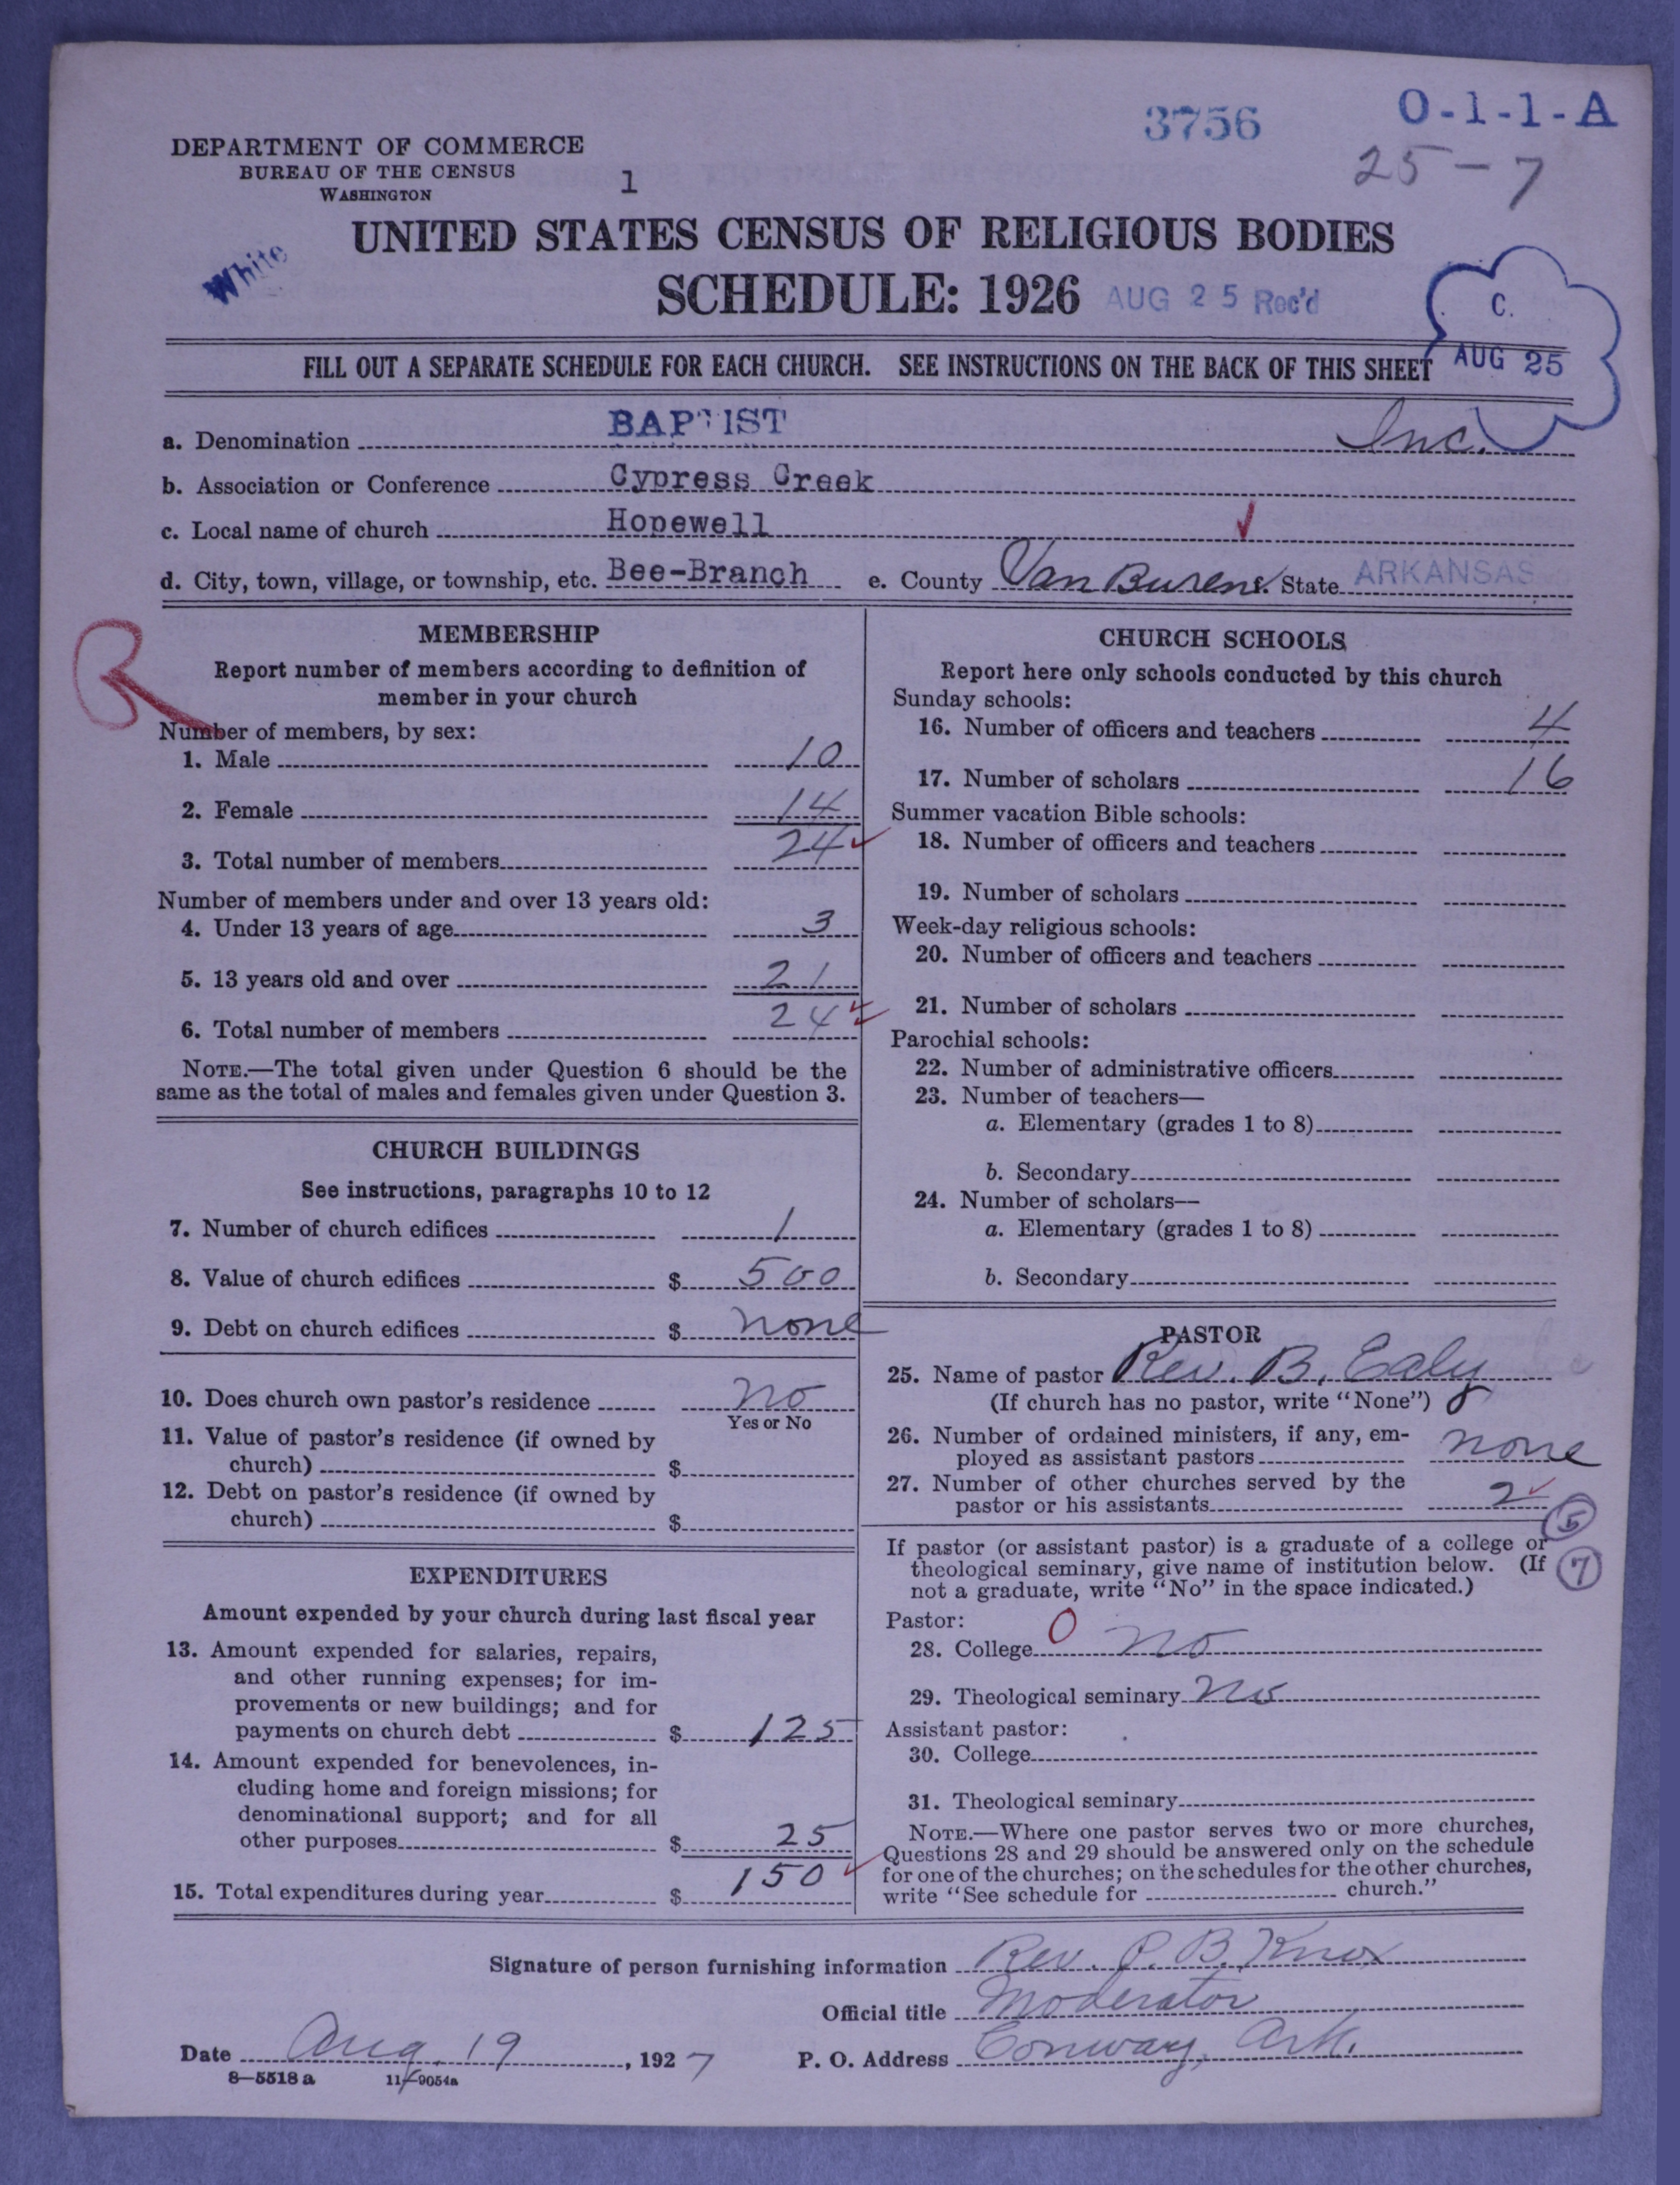 3756
O-1-1-A
25-7
DEPARTMENT OF COMMERCE
BUREAU OF THE CENSUS
WASHINGTON
1
UNITED STATES CENSUS OF RELIGIOUS BODIES
White
SCHEDULE: 1926
AUG 25 Rec'd
C.
AUG 25
FILL OUT A SEPARATE SCHEDULE FOR EACH CHURCH. SEE INSTRUCTIONS ON THE BACK OF THIS SHEET
a. Denomination BAPTIST Inc.
b. Association or Conference Cypress Creek
c. Local name of church Hopewell
d. City, town, village, or township, etc. Bee-Branch e. County Van Buren f. State ARKANSAS
R
MEMBERSHIP
Report number of members according to definition of
member in your church
Number of members, by sex:
1. Male 10
2. Female 14
3. Total number of members 24
Number of members under and over 13 years old:
4. Under 13 years of age 3
5. 13 years old and over 21
6. Total number of members 24
NOTE.—The total given under Question 6 should be the
same as the total of males and females given under Question 3.
CHURCH BUILDINGS
See instructions, paragraphs 10 to 12
7. Number of church edifices 1
8. Value of church edifices $ 500
9. Debt on church edifices $ none
10. Does church own pastor's residence no
Yes or No
11. Value of pastor's residence (if owned by
church) $
12. Debt on pastor's residence (if owned by
church) $
EXPENDITURES
Amount expended by your church during last fiscal year
13. Amount expended for salaries, repairs,
and other running expenses; for im-
provements or new buildings; and for
payments on church debt $ 125
14. Amount expended for benevolences, in-
cluding home and foreign missions; for
denominational support; and for all
other purposes $ 25
15. Total expenditures during year $ 150
CHURCH SCHOOLS
Report here only schools conducted by this church
Sunday schools:
16. Number of officers and teachers 4
17. Number of scholars 16
Summer vacation Bible schools:
18. Number of officers and teachers
19. Number of scholars
Week-day religious schools:
20. Number of officers and teachers
21. Number of scholars
Parochial schools:
22. Number of administrative officers
23. Number of teachers—
a. Elementary (grades 1 to 8)
b. Secondary
24. Number of scholars—
a. Elementary (grades 1 to 8)
b. Secondary
PASTOR
25. Name of pastor Rev. B. Ealy
(If church has no pastor, write "None")
26. Number of ordained ministers, if any, em-
ployed as assistant pastors none
27. Number of other churches served by the
pastor or his assistants 2
5
7
If pastor (or assistant pastor) is a graduate of a college or
theological seminary, give name of institution below. (If
not a graduate, write "No" in the space indicated.)
Pastor: 0
28. College no
29. Theological seminary no
Assistant pastor:
30. College
31. Theological seminary
NOTE.—Where one pastor serves two or more churches,
Questions 28 and 29 should be answered only on the schedule
for one of the churches; on the schedules for the other churches,
write "See schedule for church."
Signature of person furnishing information Rev. P. B. Knox
Official title Moderator
Date Aug. 19, 1927 P. O. Address Conway, Ark.
8—5518 a 11—9054a